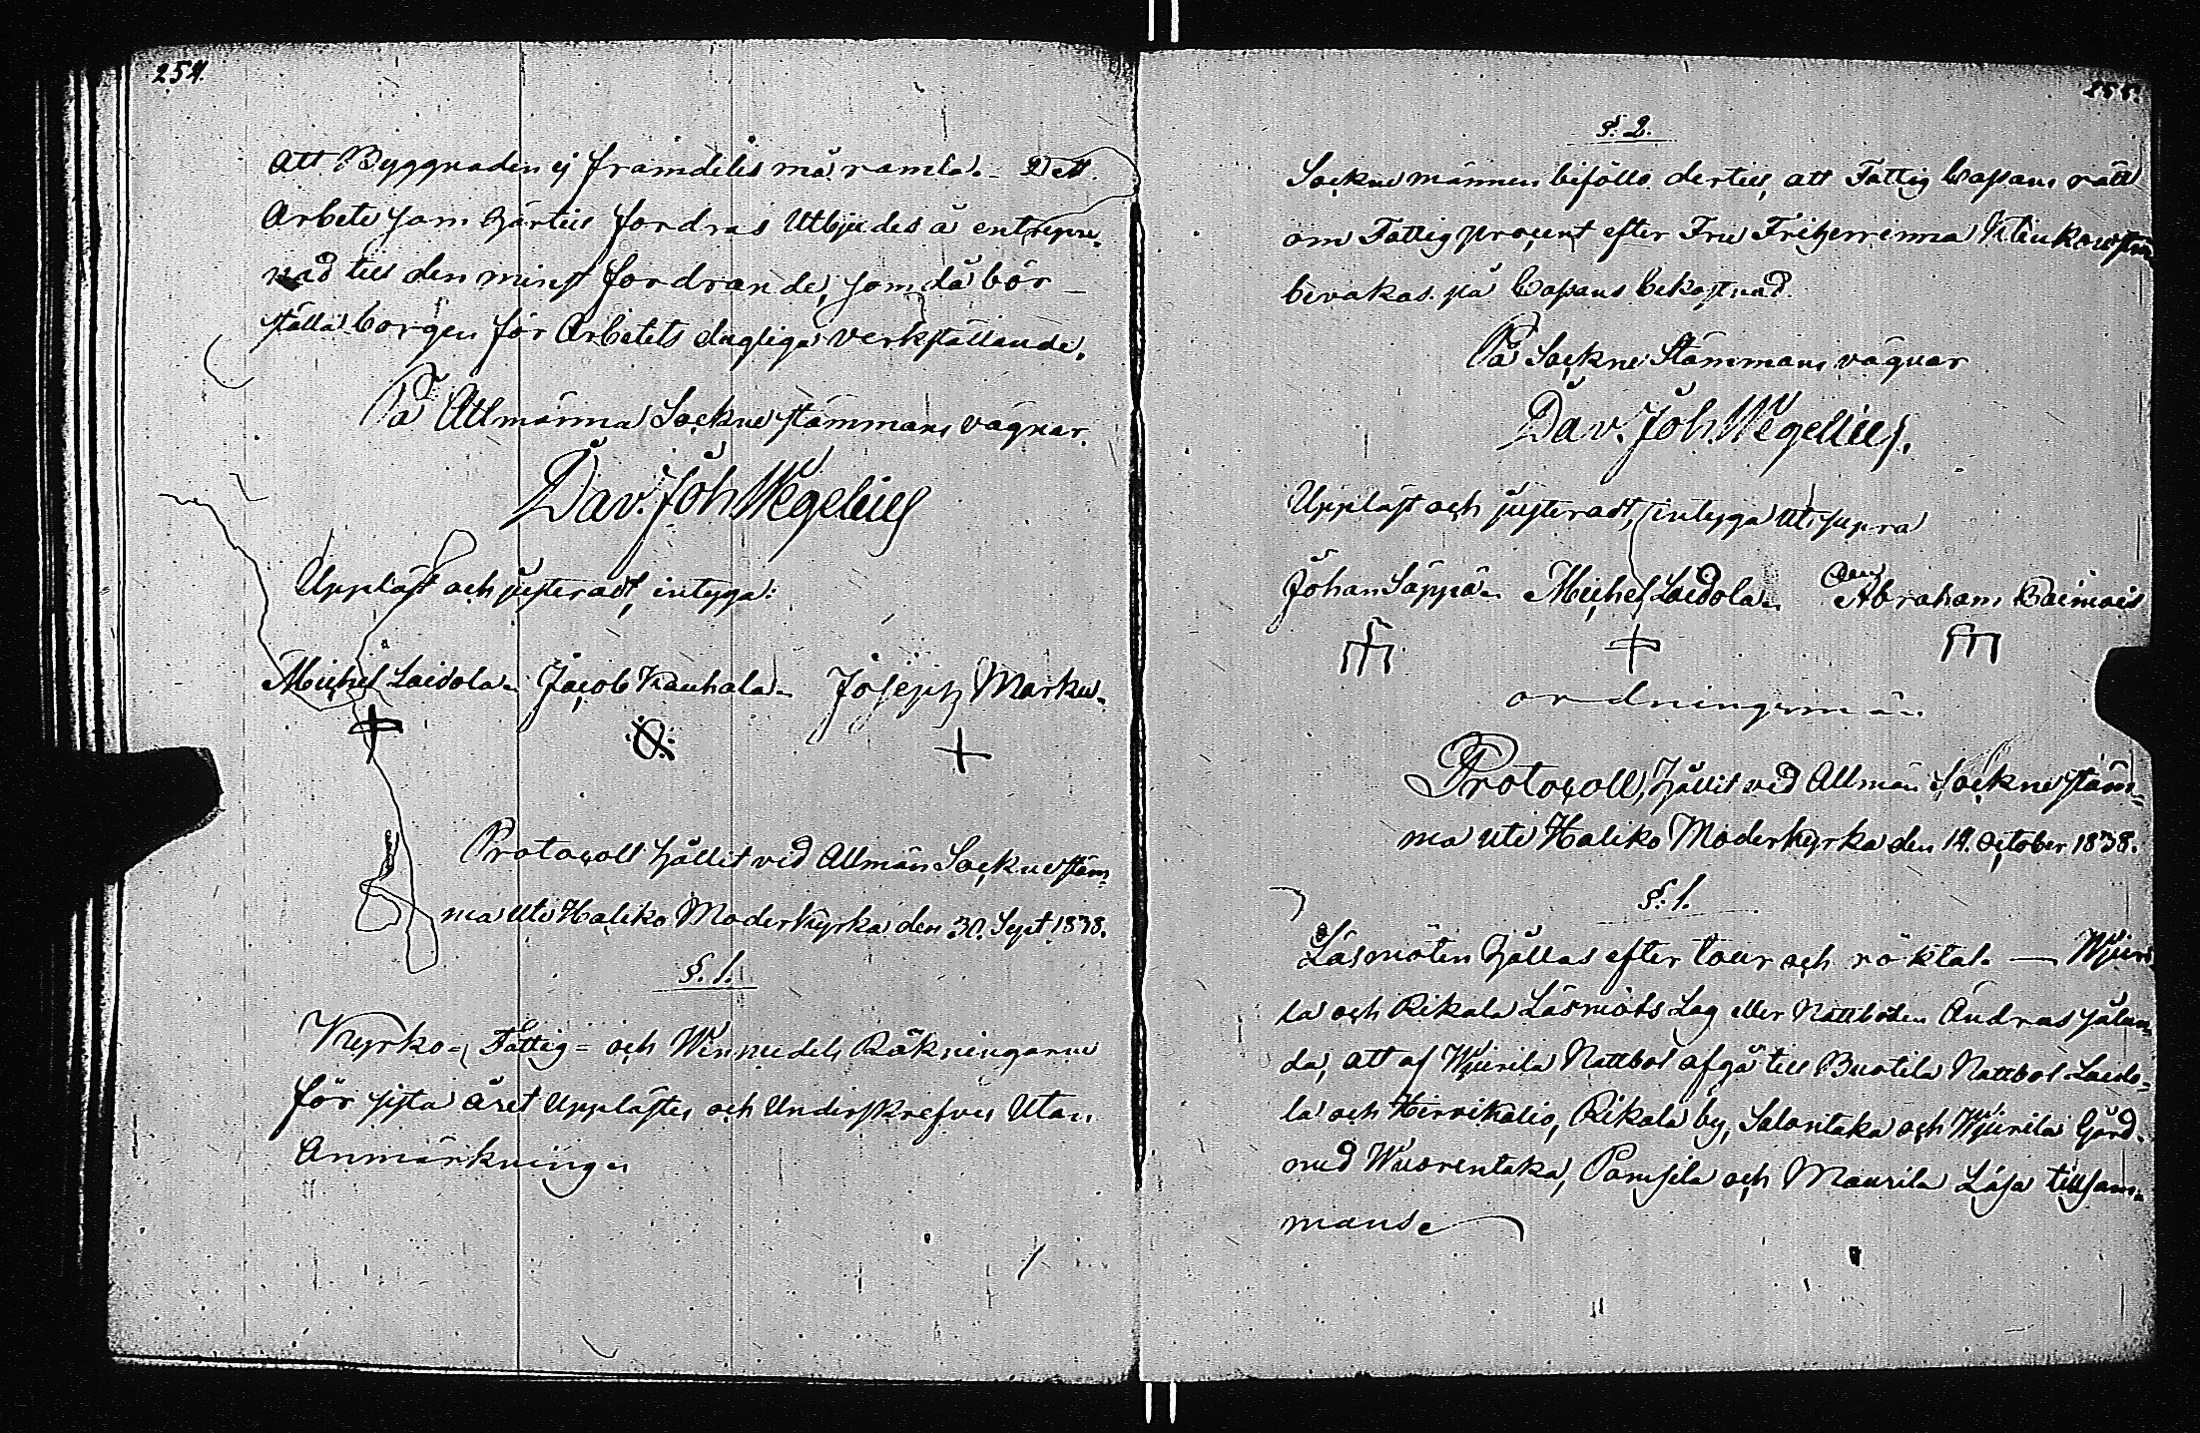 254.
att Byggnaden ej framdeles må ramla. - Dett
Arbete som härtill fordras utbjudes å entrepre-
nad till den minst fordrande, som då bör
ställa borgen för Arbetets dugliga verkställande.
På Allmänna Sockne stämmans vägnar.
Dav. Joh. Wegelius
Uppläst och justeradt, intyga:
Michel Laidola. Jacob Kauhala. Joseph Marku.
Protocoll hållit vid Allmän Sockne stäm-
ma uti Haliko Moderkyrka den 30. Sept. 1838.
§. 1.
Kyrko-, Fattig- och Winmedels Räkningarne
för sista året upplästes och underskrefves utan
Anmärkning.
255.
§. 2.
Sockne männen biföllo dertill, att Fattig Cassans rätt
om Fattig procent efter Fru Friherrinna
bevakas på Cassans bekostnad.
På Sockne Stämmans vägnar
Dav. Joh. Wegelius.
Uppläst och justeradt, intyga ut supra
Johan Säppä. Michel Laidola. Abraham
ordningsmän.
Protocoll, hållit vid Allmän Sockne stäm-
ma uti Haliko Moderkyrka den 14. October 1838.
§. 1.
Läsmöten hållas efter tour och röktal. — Wjuri-
la och Rikala Läsmöts Lag eller Nattbolen ändras sålun-
da, att af Wjurila Nattbol afgå till Buotila Nattbol Laido-
la och Hirvikalio, Rikala by, Salontaka och Wjurila Gård
med Wuorentaka, Pamsila och Maurila Läsa tillsam-
mans.